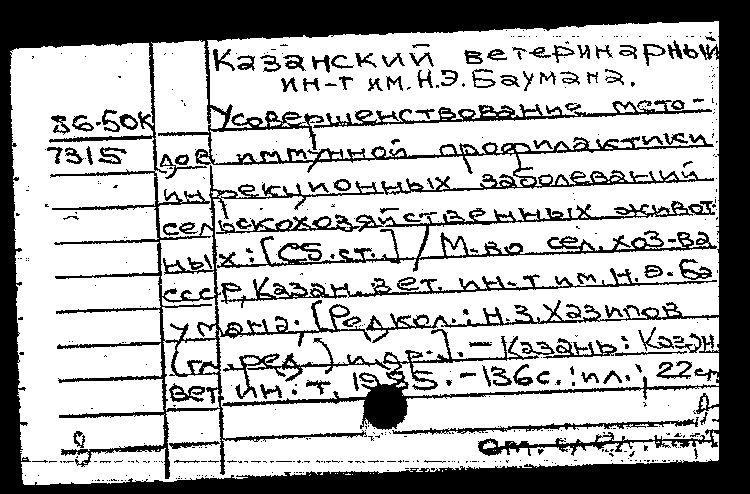 Казанский ветеринарный
ин-т им. Н.Э. Баумана.
86-50к Усовершенствование мето-
7315 дов иммунной профилактики
инфекционных заболеваний
сельскохозяйственных живот
ных: [Сб. ст.] / М-во сел. хоз-ва
СССР, Казан. вет. ин-т им. Н.Э. Ба
умана. [Редкол.: Н.З. Хазипов
(гл. ред.) и др.]. - Казань: Казан.
вет. ин-т, 1985. - 136 с.: ил.; 22 см
См. след. карт